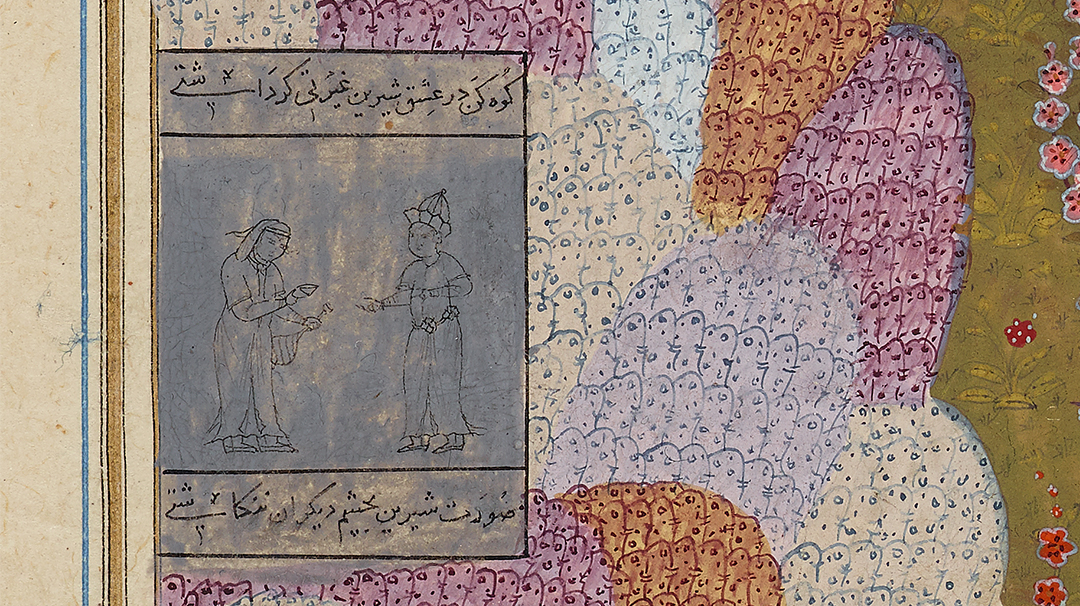 کوه کن در عشق شیرین غیرتی کر داشتی
صورت شیرین بچشم دیکران ننکاشتی